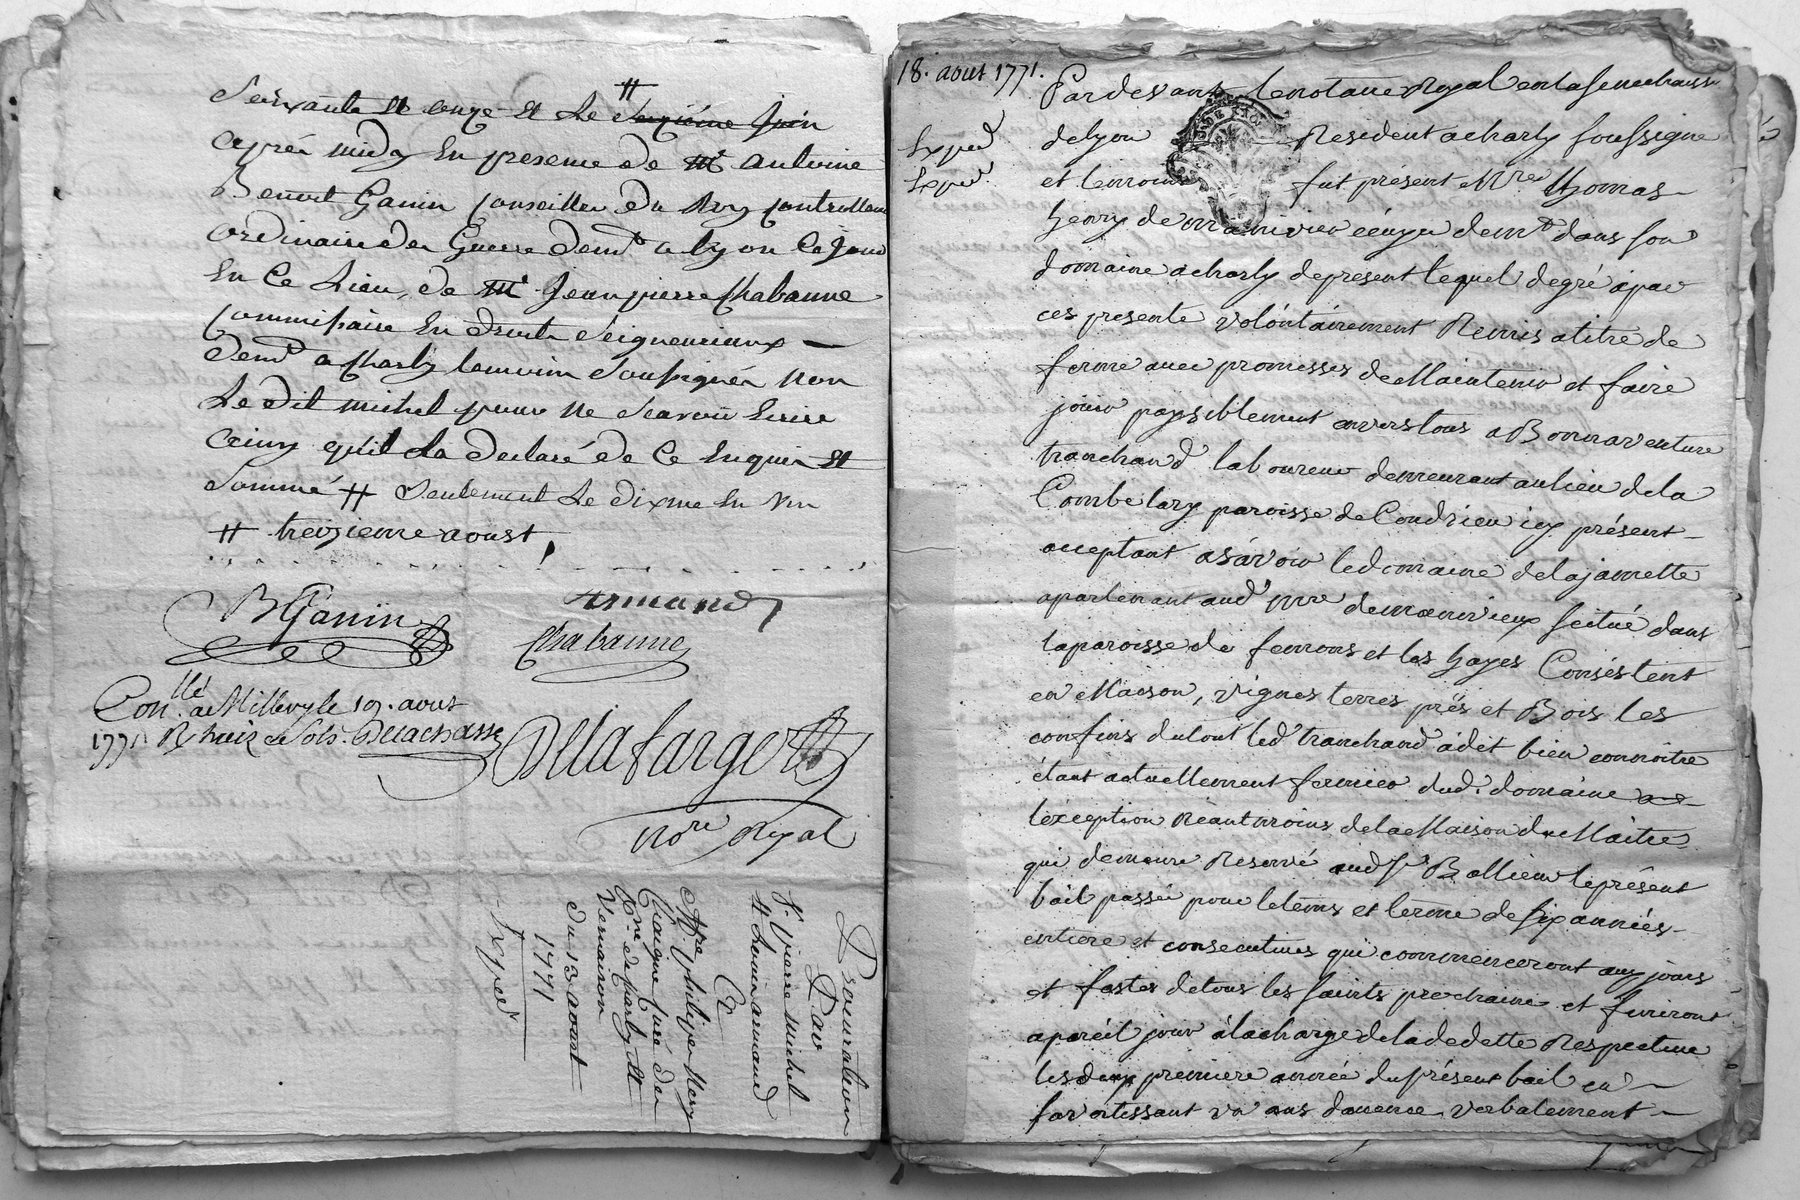 Soixante et onze et Le # Seizieme Juin
apres midy En presence de Mr Antoine
Benoit Ganin Conseiller du Roy Controlleur
ordinaire des Guerre demt a Lyon Ce jour
En Ce Lieu, de Mr Jean pierre Chabanne
Commissaire En droits Seigneuriaux
demt a Charly temoins Soussignés non
Le dit michel pour ne Scavoir Ecrire
ainsy qu'il La declaré de Ce Enquis et
Sommé # Seulement Le dixme En Vin
# treizieme aoust
BGanin
Armand
Chabanne
Conllé a Millery le 19. aout
1771 R huit Sols. Delachasse
Delafarge
nore Royal
Procuration
Par
Sr. pierre michel
# Louis armand
A
Mre philipe Mery
Curé de
de Charly et
Vernaison
du 13 aoust
1771
Exped
18. aout 1771.
Exped
Exped.
Pardevant le notaire Royal en la senechaussée
de Lyon Resident a charly soussigné
et temoins fut présent Mre thomas
henry de mainivieu écuyer demt dans son
domaine a charly de present lequel de gré a par
ces presente volontairement Remis a titre de
ferme avec promesses de Maintenir et faire
jouir paysiblement envers tous a Bonnaventure
tranchand laboureur demeurant au lieu de la
Combe lary paroisse de Condrieu icy présent
acceptant asávoir le domaine de la jamette
apartenant aud Mre de mainivieux scitué dans
la paroisse de semons et les hayes Consistent
en Maison, vignes terres prés et Bois les
confins du tout led tranchand a dit bien connoitre
étant actuellement fermier dud. domaine
léxception néantmoins de la Maison du Maitre
qui demeure Reservé aud Sr Ballieur le présent
bail passée pour le tems et terme de six années
entiere et consecutives qui commenceront aux jours
et festes de tous les saints prochaine et finiront
a pareil jour á la charge de la dedette Respective
les deux premiere année du présent bail en
favertissant un ans davance verbalement